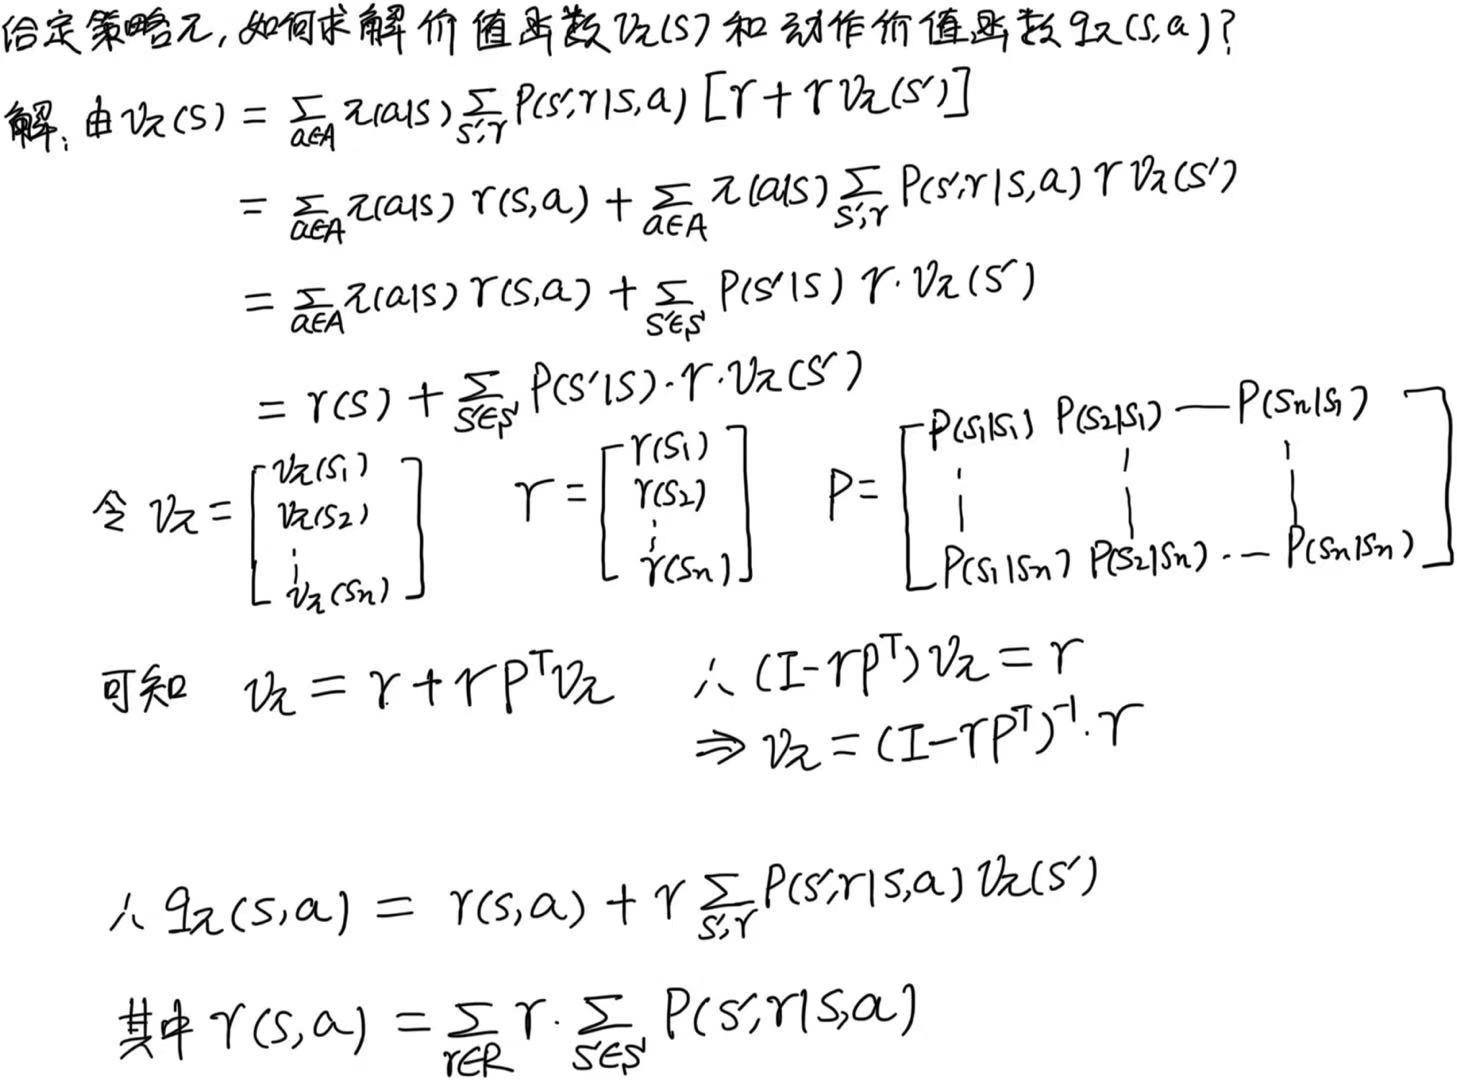 给定策略π,如何求解价值函数vπ(s)和动作价值函数qπ(s,a)?
解:由vπ(s) = Σ_{a∈A} π(a|s) Σ_{s',r} P(s',r|s,a) [r + γ vπ(s')]
= Σ_{a∈A} π(a|s) r(s,a) + Σ_{a∈A} π(a|s) Σ_{s',r} P(s',r|s,a) γ vπ(s')
= Σ_{a∈A} π(a|s) r(s,a) + Σ_{s'∈S} P(s'|s) γ·vπ(s')
= r(s) + Σ_{s'∈S} P(s'|s)·γ·vπ(s')
令 vπ = [vπ(s₁) vπ(s₂) ⋮ vπ(sn)] r = [r(s₁) r(s₂) ⋮ r(sn)] P = [P(s₁|s₁) P(s₂|s₁) — P(sn|s₁) ⋮ ⋮ ⋮ P(s₁|sn) P(s₂|sn) ·-- P(sn|sn)]
可知 vπ = r + γPᵀvπ ∴ (I-γPᵀ)vπ = r
⇒ vπ = (I-γPᵀ)⁻¹·r
∴ qπ(s,a) = r(s,a) + γ Σ_{s',r} P(s',r|s,a) vπ(s')
其中 r(s,a) = Σ_{r∈R} r· Σ_{s'∈S} P(s',r|s,a)